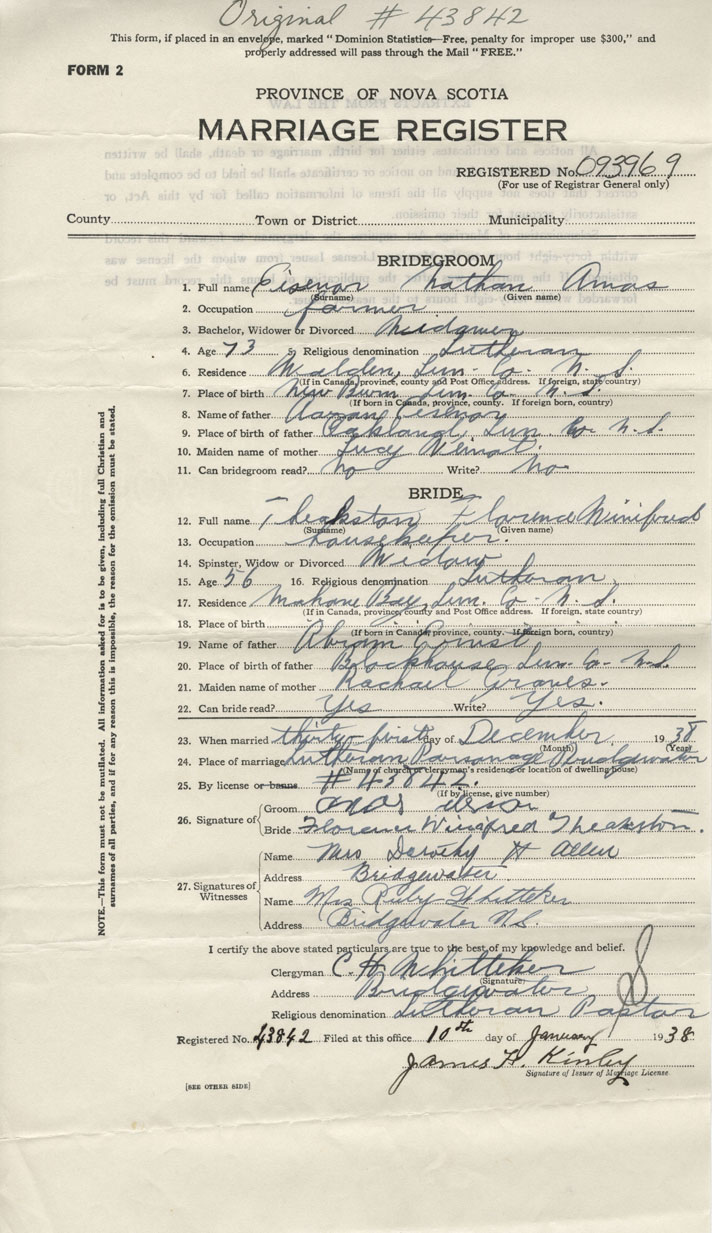 Original # 43842
This form, if placed in an envelope, marked "Dominion Statistics—Free, penalty for improper use $300," and
properly addressed will pass through the Mail "FREE."
FORM 2
PROVINCE OF NOVA SCOTIA
MARRIAGE REGISTER
REGISTERED No. 093969
(For use of Registrar General only)
County Town or District Municipality
BRIDEGROOM
1. Full name Eisenor Nathan Amos
(Surname) (Given name)
2. Occupation farmer
3. Bachelor, Widower or Divorced Widower
4. Age 73 5. Religious denomination Lutheran
6. Residence Walden, Lun. Co. N. S.
(If in Canada, province, county and Post Office address. If foreign, state country)
7. Place of birth New Burn Lun. Co. N. S.
(If born in Canada, province, county. If foreign born, country)
8. Name of father Aaron Eisenor
9. Place of birth of father Oakland, Lun. Co. N. S.
10. Maiden name of mother Lucy Veinot.
11. Can bridegroom read? No Write? No
BRIDE
12. Full name Theakston Florence Winifred
(Surname) (Given name)
13. Occupation housekeeper.
14. Spinster, Widow or Divorced Widow
15. Age 56 16. Religious denomination Lutheran
17. Residence Mahone Bay, Lun. Co. N. S.
(If in Canada, province, county and Post Office address. If foreign, state country)
18. Place of birth
(If born in Canada, province, county. If foreign born, country)
19. Name of father Abram Ernst
20. Place of birth of father Blockhouse, Lun. Co. N.S.
21. Maiden name of mother Rachael Graves.
22. Can bride read? Yes Write? Yes.
23. When married thirty-first day of December 1938
(Month) (Year)
24. Place of marriage Lutheran Parsonage Bridgewater
(Name of church or clergyman's residence or location of dwelling house)
25. By license or banns # 43842.
(If by license, give number)
26. Signature of Groom
Bride Florence Winifred Theakston.
27. Signatures of Witnesses
Name Mrs Dorothy H Allen
Address Bridgewater
Name Mrs Ruby Whitteker
Address Bridgewater N.S.
I certify the above stated particulars are true to the best of my knowledge and belief.
Clergyman C. H. Whitteker
(Signature)
Address Bridgewater
Religious denomination Lutheran Pastor
Registered No. 43842 Filed at this office 10th day of January 1938
James H. Kinley
Signature of Issuer of Marriage License
[SEE OTHER SIDE]
NOTE.—This form must not be mutilated. All information asked for is to be given, including full Christian and
surnames of all parties, and if for any reason this is impossible, the reason for the omission must be stated.